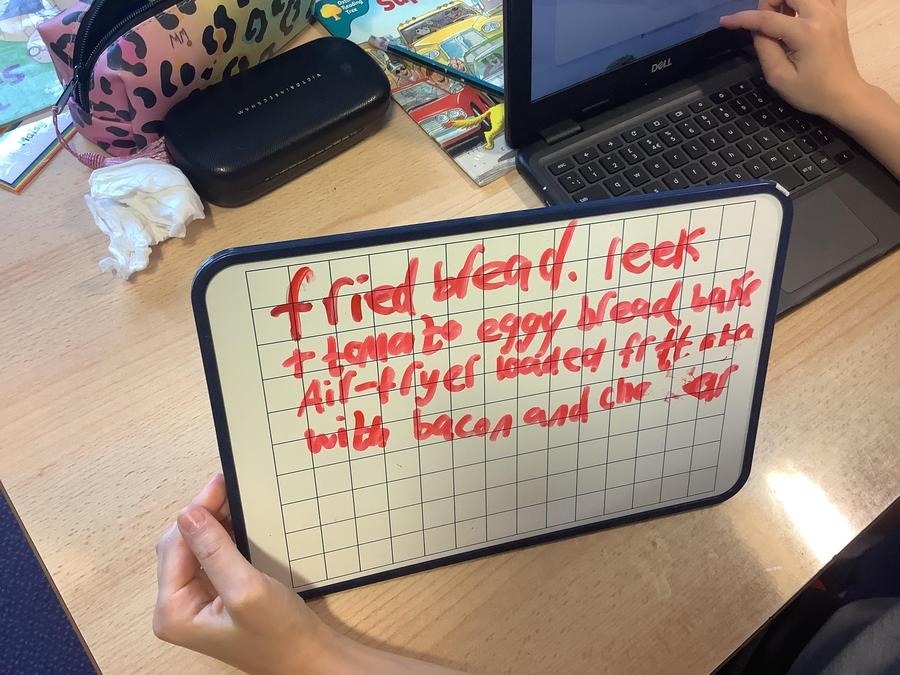 fried bread. leek
+ tomato eggy bread bake
Air-fryer loaded frittata
with bacon and
DELL
VICTORIA BECKHAM
Oxford
Reading
Tree